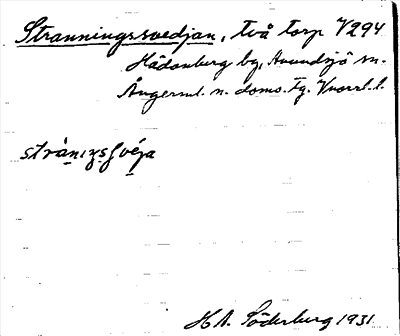 Stranningssvedjan, två torp V294
Hädanberg by, Anundsjö sn.
Ångerml. n. doms. Tg. Vnorrl. l.
H A. Söderberg 1931.